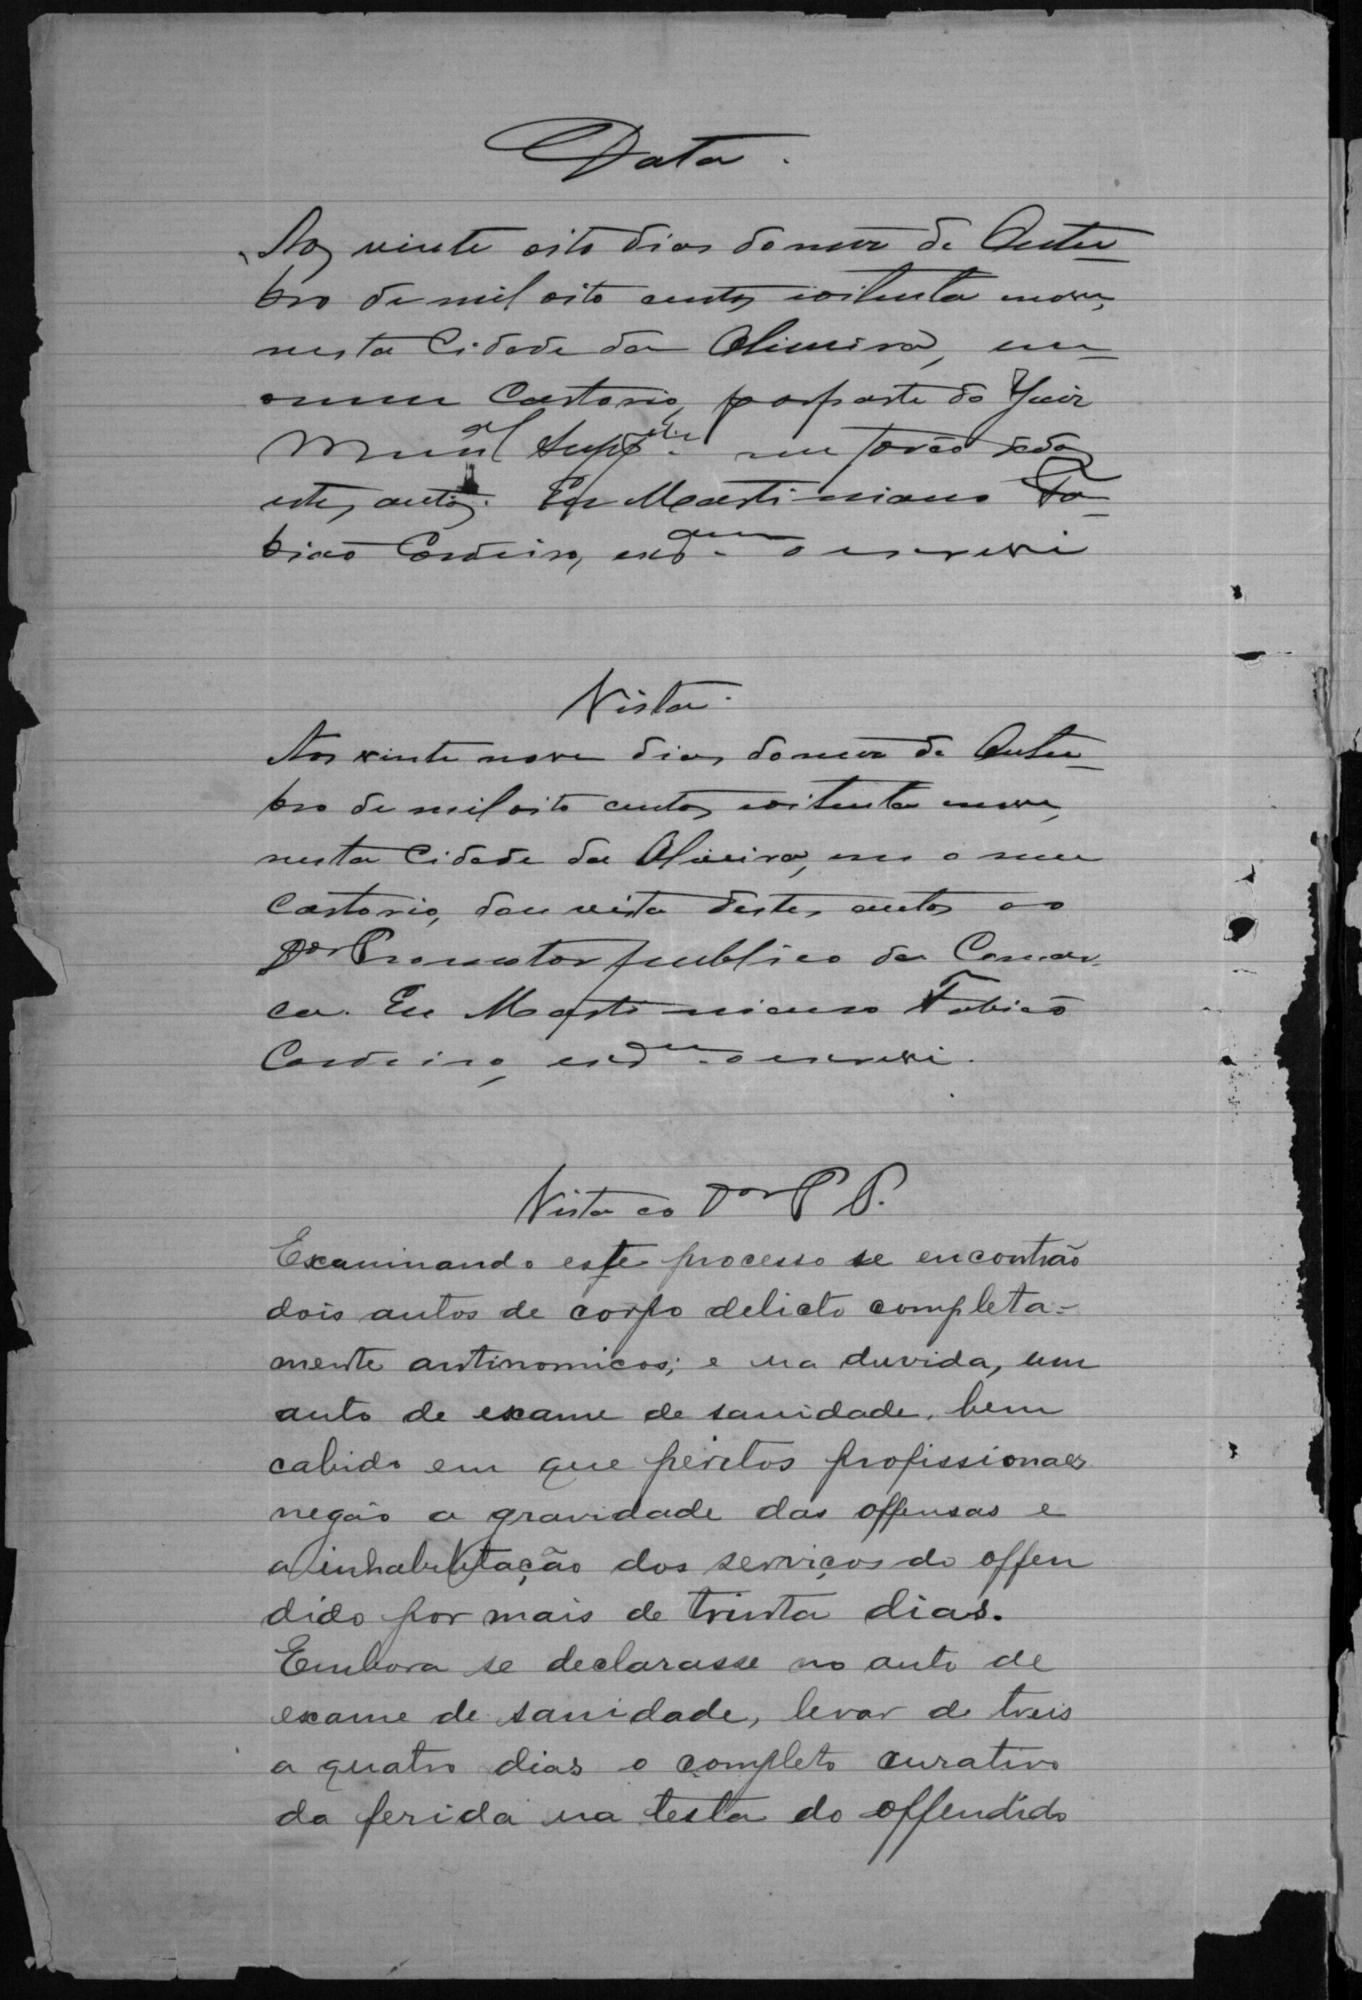 Data.
Aos vinte oito dias do mez de Outu-
bro de mil oito centos e oitenta e nove,
nesta Cidade da Oliveira, em
o meu Cartorio, por parte do Juiz
Mun.al Supp.te me forão dados
estes autos. Eu Martiniano Fa-
bião Cordeiro, escr.am o escrevi
Vista.
Aos vinte nove dias do mez de Outu-
bro de mil oito centos e oitenta e nove,
nesta Cidade da Oliveira, em o meu
Cartorio, dou vista destes autos ao
Dor Promotor publico da Comar-
ca. Eu Martiniano Fabião
Cordeiro, escr.am o escrevi.
Vista ao Dor P P.
Examinando este processo se encontrão
dois autos de corpo delicto completa-
mente antinomicos; e na duvida, um
auto de exame de sanidade, bem
cabido em que peritos profissionaes
negão a gravidade das offensas e
a inhabilitação dos serviços do offen
dido por mais de trinta dias.
Embora se declarasse no auto de
exame de sanidade, levar de treis
a quatro dias o completo curativo
da ferida na testa do offendido